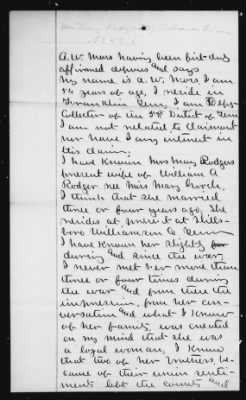 A. W. Moss having been first duly
affirmed deposes and says
My name is A. W. Moss. I am
54 years of age, I reside in
Franklin Tenn, I am Deputy
Collector of the 5th District of Tenn
I am not related to Claimant
nor have I any interest in
this claim;
I have Known Mrs Mary Rodgers
present wife of William A
Rodger nee Miss Mary
I think that she married
three or four years ago. She
resides at present at Hills-
boro Williamson Co Tenn
I have Known her slightly for
during and since the war,
I never met her more than
three or four times during
the war and from then the
impression, from her con-
versation and what I Knew
of her family was created
on my mind that she was
a loyal woman; I Know
that two of her brothers, be-
cause of their union senti-
ments left the county and